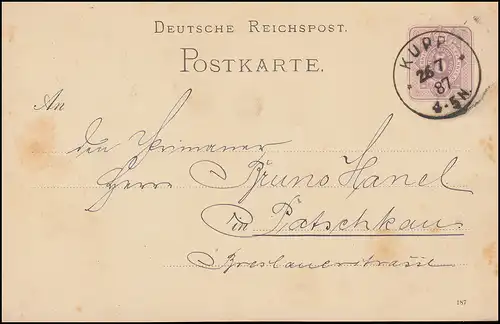 DEUTSCHE REICHSPOST.
POSTKARTE.
KUPP
26 7
87
4-5N.
An
den Primaner
Herrn Bruno Hanel
in Patschkau
Breslauerstrasse
187